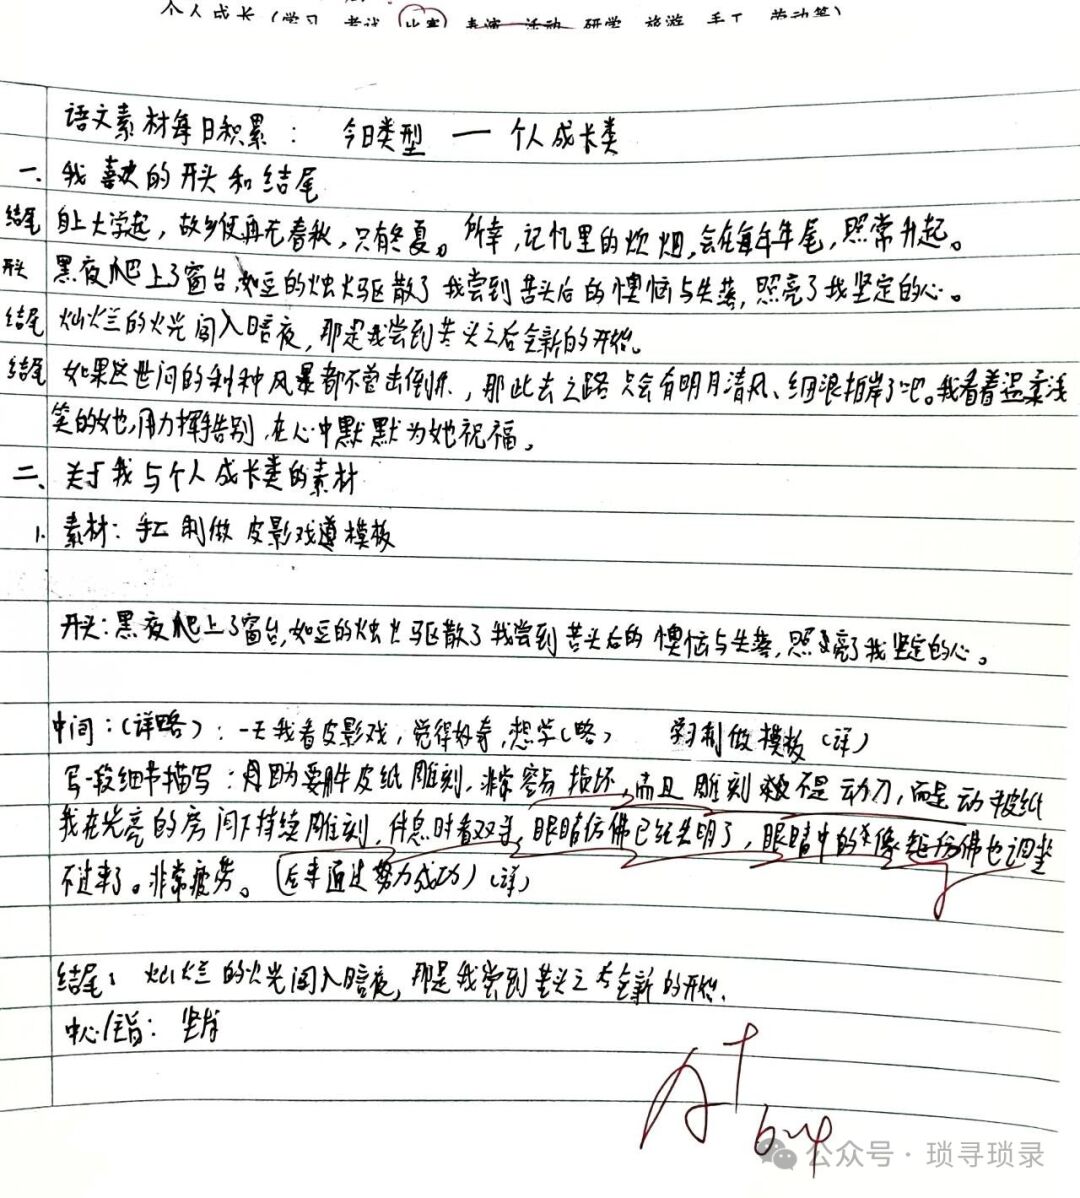 个人成长(学习 考试 比赛 表演 活动 研学 旅游 手工 劳动等)
语文素材每日积累: 今日类型 — 个人成长类
一、我喜欢的开头和结尾
结尾 自上大学起,故乡便再无春秋,只有冬夏。所幸,记忆里的炊烟,会在每年年尾,照常升起。
开头 黑夜爬上了窗台,如豆的烛火驱散了我尝到苦头后的懊恼与失落,照亮了我坚定的心。
结尾 灿烂的火光闯入暗夜,那是我尝到苦头之后全新的开始。
结尾 如果这世间的种种风暴都不曾击倒你,那此去之路只会有明月清风、细浪拍岸了吧。我看着温柔浅
笑的她,用力挥手告别,在心中默默为她祝福。
二、关于我与个人成长类的素材
1. 素材:手工制做皮影戏 模板
开头:黑夜爬上了窗台,如豆的烛火驱散了我尝到苦头后的懊恼与失落,照亮了我坚定的心。
中间:(详略):一天我看皮影戏,觉得好奇,想学(略) 学习制做模板(详)
写一段细节描写:因为要胖皮纸雕刻,非常容易损坏,而且雕刻 不是动刀,而是动被纸
我在光亮的房间下持续雕刻,休息时看双手,眼睛仿佛已经失明了,眼睛中的 像 仿佛也调坐
不过来了。非常疲劳。(后来通过努力成功)(详)
结尾:灿烂的火光闯入暗夜,那是我尝到苦头之后全新的开始.
中心主旨:坚持
A+
公众号·琐寻琐录